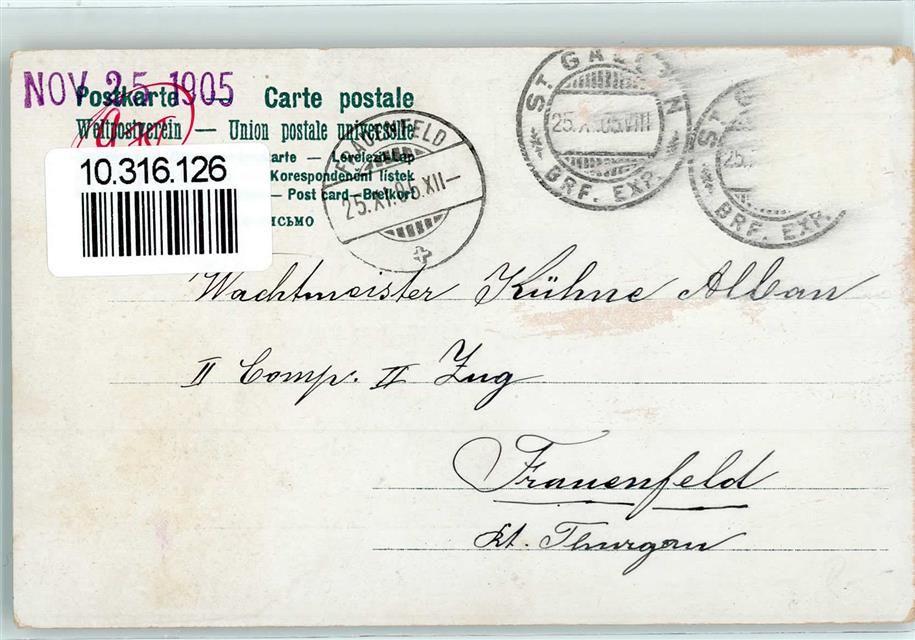 NOV 25 1905
Postkarte — Carte postale
Weltpostverein — Union postale universelle
arte — Levelezi-Lap
Korespondenční lístek
— Post card — Brefkort
ИСЬМО
10.316.126
FRAUENFELD
25.XI.05.XII—
ST. GALLEN
25.XI.05.VIII
BRF. EXP.
ST. GA
25.
BRF. EXP.
Wachtmeister Kühne Alban
II Comp. II Zug
Frauenfeld
Kt. Thurgau